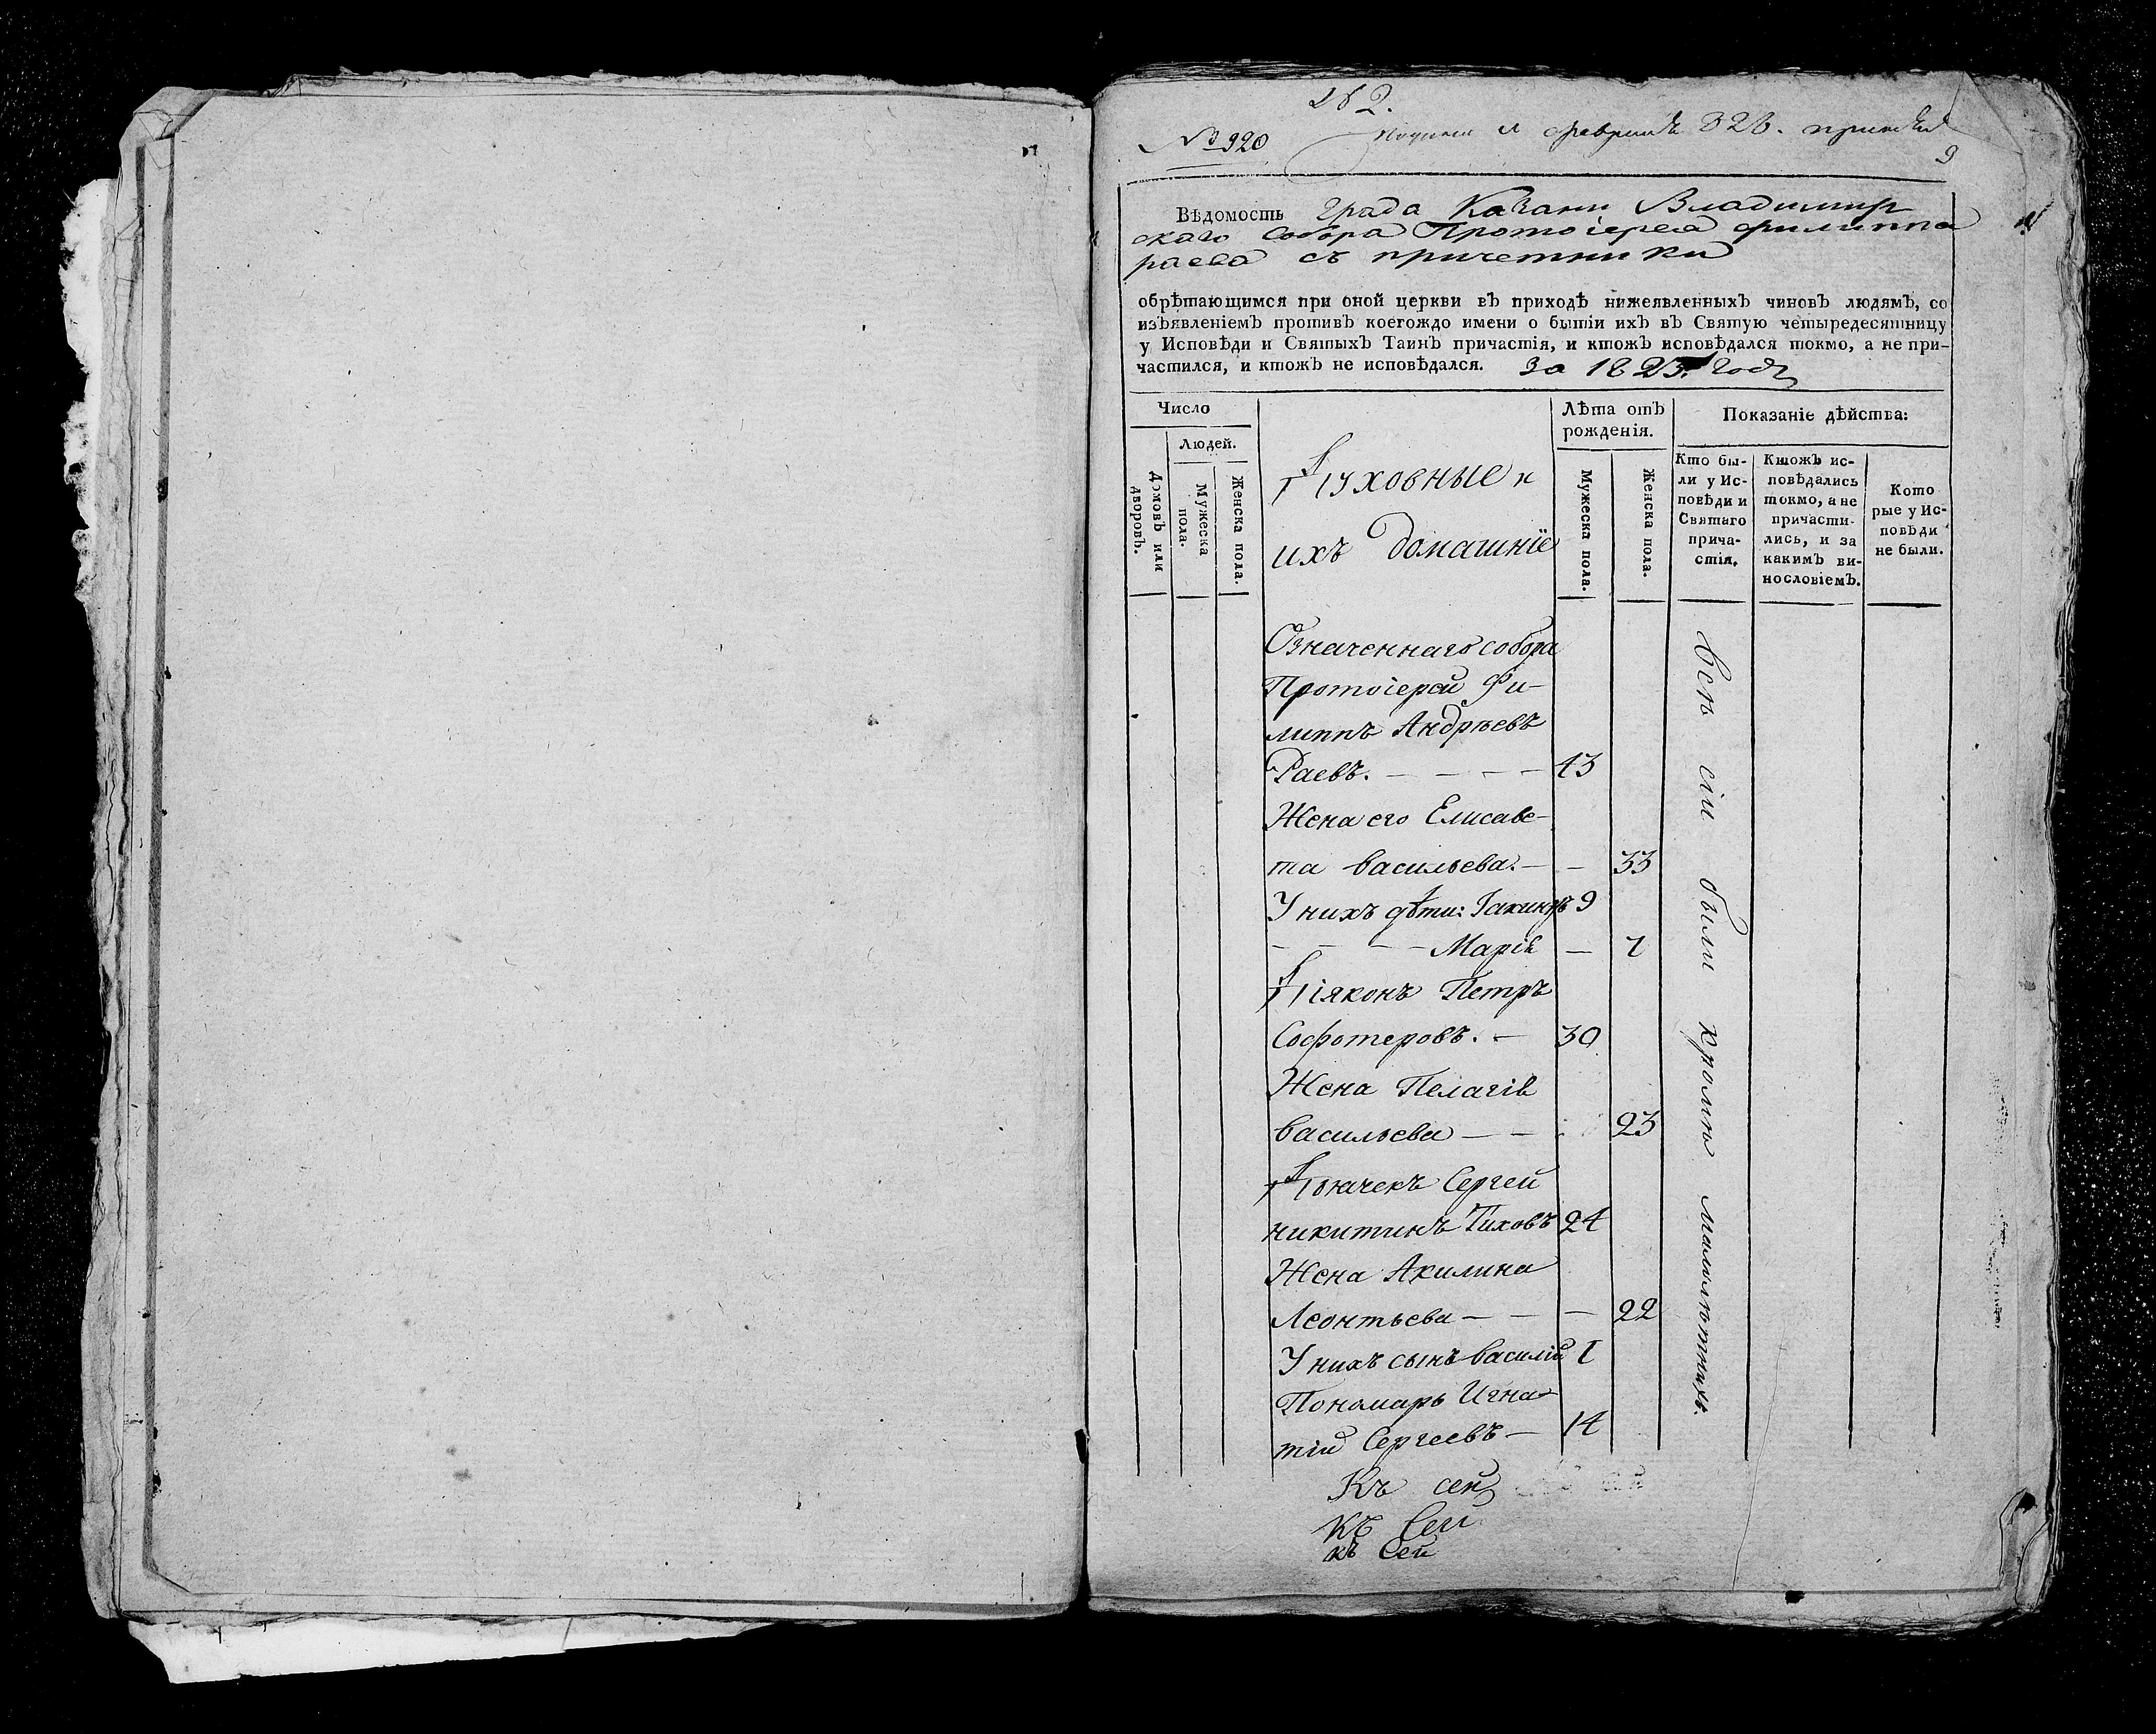 № 920
9
Вѣдомость града Казани Владимир
скаго Собора Протоіерея филиппа
раева съ причетники
обрѣтающимся при оной церкви въ приходѣ нижеявленныхъ чиновъ людямъ, со
изъявленіемъ противъ коегождо имени о бытіи ихъ въ Святую четыредесятницу
у Исповѣди и Святыхъ Таинъ причастія, и ктожъ исповѣдался токмо, а не при-
частился, и ктожъ не исповѣдался. За 1825. годъ
Число
Людей.
Домовъ или дворовъ.
Мужеска пола.
Женска пола.
Духовные и
ихъ домашніе
Лѣта отъ
рожденія.
Мужеска пола.
Женска пола.
Показаніе дѣйства:
Кто бы-
ли у Ис-
повѣди и
Святаго
прича-
стія.
Ктожъ ис-
повѣдались
токмо, а не
причасти-
лись, и за
какимъ ви-
нословіемъ.
Кото
рые у Ис-
повѣди
не были.
Означеннаго собора
Протоіерей Фи-
липпъ Андрѣевъ
Раевъ. — — — — 43
Жена его Елисаве-
та васильева. — — 33
У нихъ дѣти: Іакинѳъ 9
— — — — Марія — 7
Діяконъ Петръ
Софотеровъ. — 30
Жена Пелагія
васильева — — 23
Дьячекъ Сергей
никитинъ Тиховъ 24
Жена Акилина
Леонтьева — — — 22
У нихъ сынъ василій 1
Пономарь Игна-
тій Сергеевъ — 14
всѣ сіи были кромѣ малолѣтнихъ.
Къ сей
Къ Сей
къ Сей